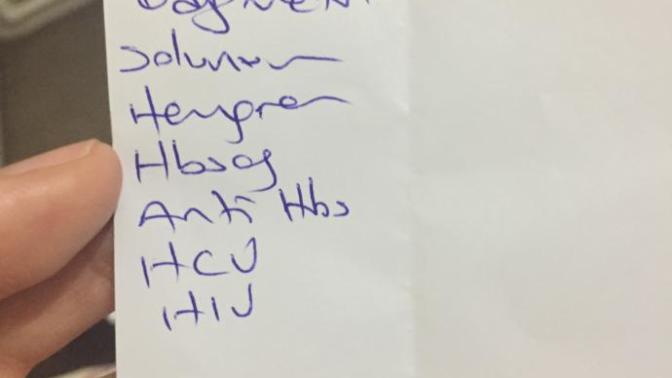 Solunum
Hemogram
Hbsag
Anti Hbs
HCV
HIV